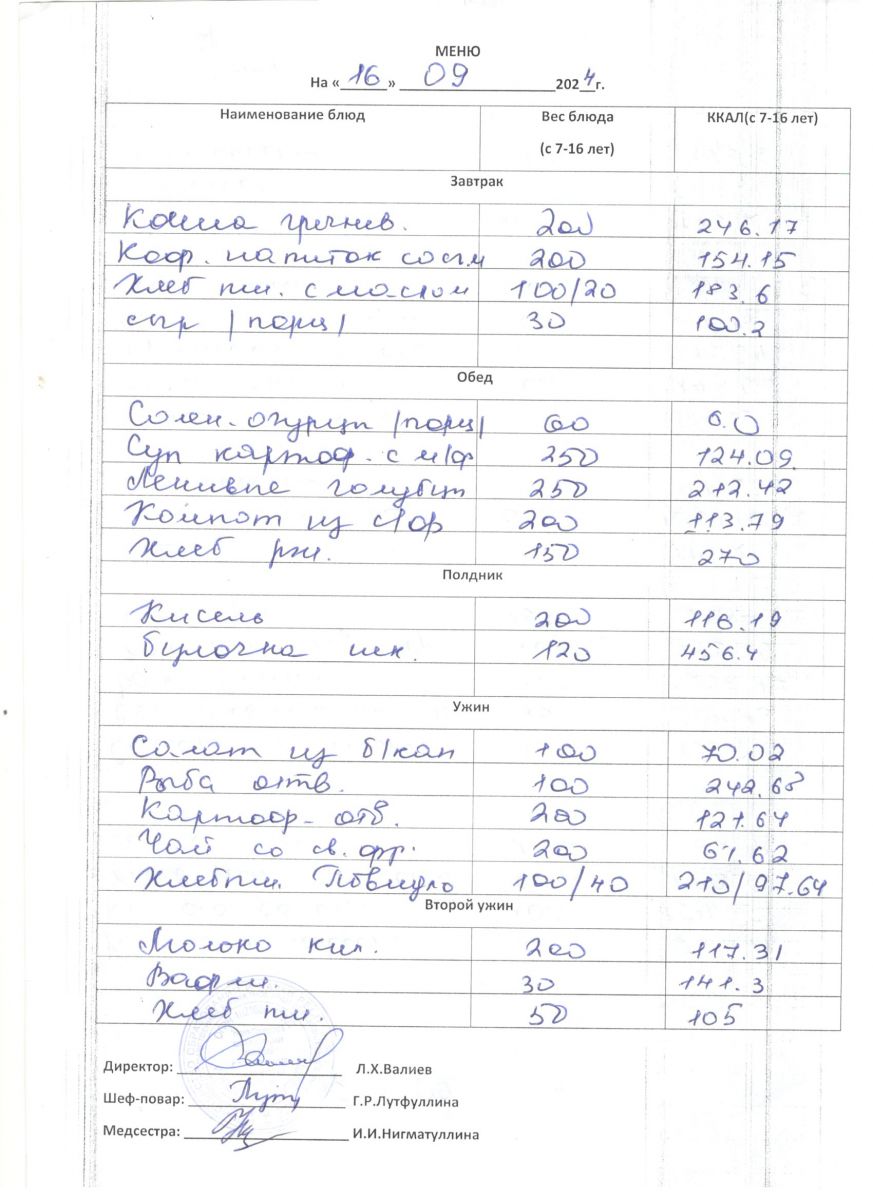 МЕНЮ
На «16» 09 2024г.
Наименование блюд Вес блюда (с 7-16 лет) ККАЛ(с 7-16 лет)
Завтрак
Каша гречнев. 200 246.17
Коф. напиток со сг.м 200 154.15
Хлеб пш. с маслом 100/20 183.6
сыр /порц/ 30 100.2
Обед
Солен. огурцы /порц/ 60 6.0
Суп картоф. с м/ф 250 124.09
Ленивые голубцы 250 212.42
Компот из с/фр 200 113.79
Хлеб рж. 150 270
Полдник
Кисель 200 116.19
Булочка шк. 120 456.4
Ужин
Салат из б/кап 100 70.02
Рыба отв. 100 242.68
Картоф- отв. 200 121.64
Чай со св. фр. 200 61.62
Хлеб пш. Повидло 100/40 210/97.64
Второй ужин
Молоко кип. 200 117.31
Вафли. 30 141.3
Хлеб пш. 50 105
Директор: Л.Х.Валиев
Шеф-повар: Г.Р.Лутфуллина
Медсестра: И.И.Нигматуллина